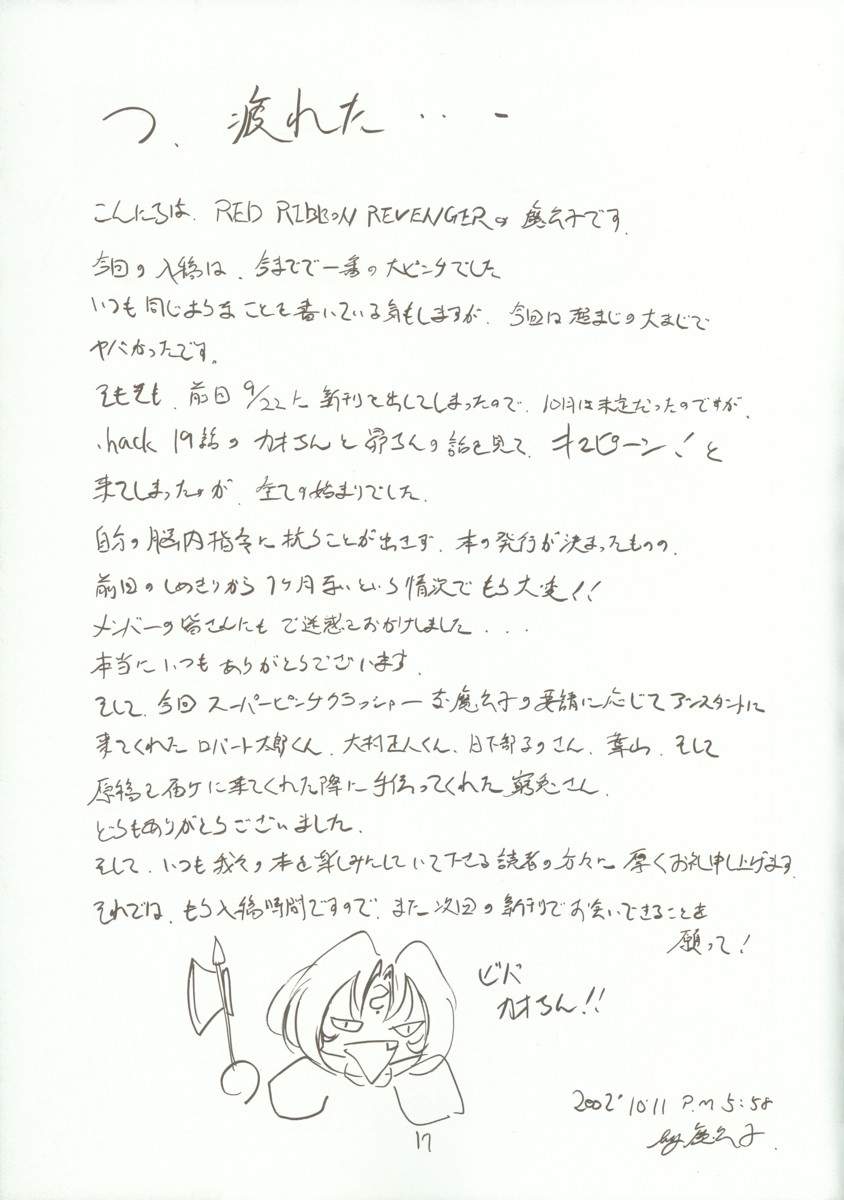 つ、疲れた・・ー
こんにちは、RED RIBBON REVENGERの魔公子です。
今回の入稿は、今までで一番の大ピンチでした
いつも同じようなことを書いている気もしますが、今回は超まじの大まじで
ヤバかったです。
そもそも、前回9/22に新刊を出してしまったので、10月は未定だったのですが、
.hack 19話のカオちんと昴ちんの話を見て、キュピーン!と
来てしまったのが、全ての始まりでした。
自分の脳内指令に抗うことが出きず、本の発行が決まったものの、
前回のしめきりから1ヶ月ないという情況でもう大変!!
メンバーの皆さんにもご迷惑をおかけしました...
本当にいつもありがとうございます。
そして、今回スーパーピンチクラッシャーな魔公子の要請に応じてアシスタントに
来てくれたロバート太郎くん、大村正人くん、日下部さん、葉山、そして
原稿を届けに来てくれた際に手伝ってくれた窮兎さん、
どうもありがとうございました。
そして、いつも我々の本を楽しみにしていて下さる読者の方々に厚くお礼申し上げます。
それでは、もう入稿時間ですので、また次回の新刊でお会いできることを
願って!
ビバ
カオちん!!
2002' 10.11 P.M 5:58
by 魔公子.
17